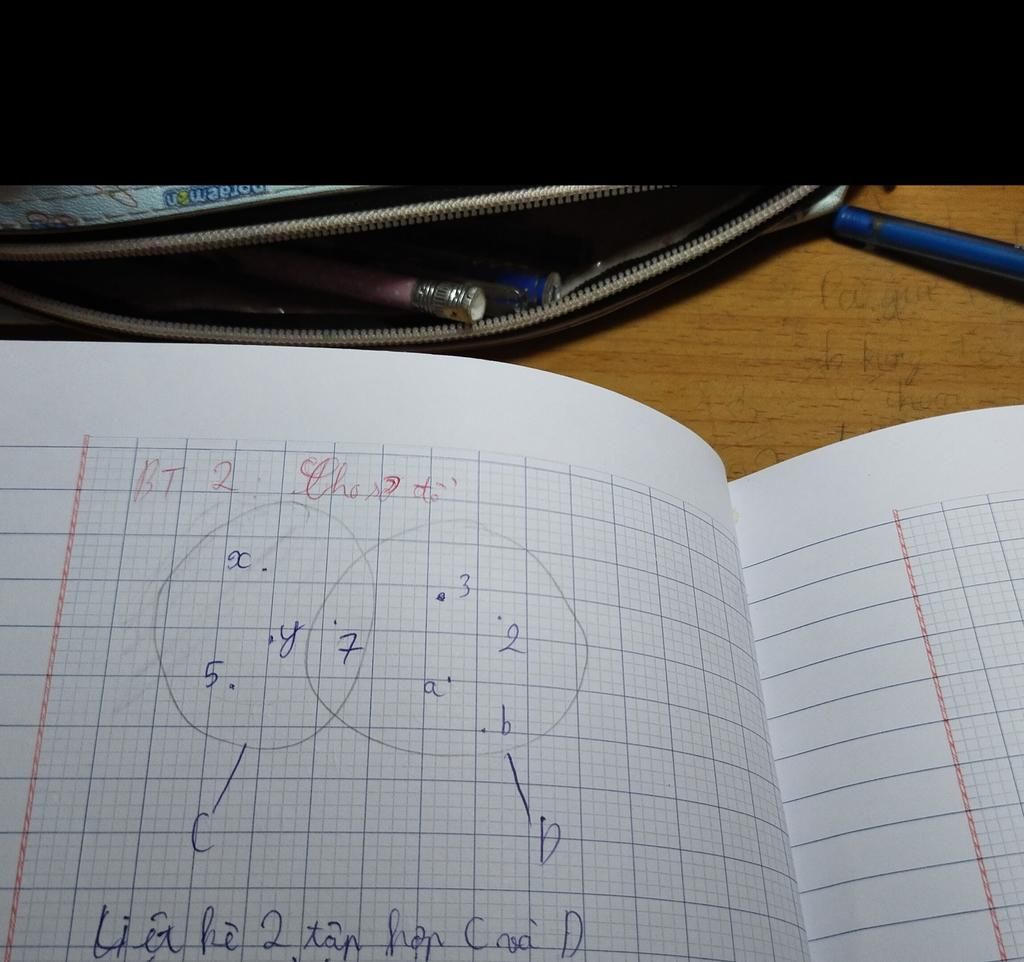 Doraemon
BT 2: Cho sơ đồ
x
3
y
7
2
5
a
b
C
D
Liệt kê 2 tập hợp C và D